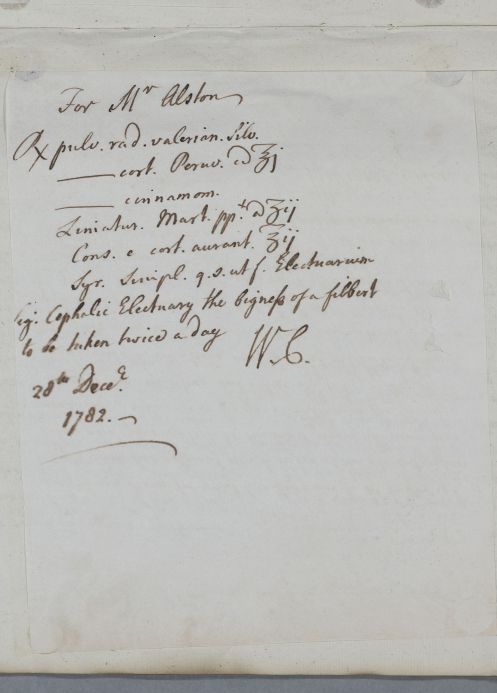 For Mr Alston
℞ pulv. rad. valerian. silv.
—— cort. Peruv. a̅ ℥j
—— cinnamom.
Limatur. Mart. ppt. a̅ ʒij
Cons. e cort. aurant. ℥ij
Syr. Simpl. q.s. ut f. Electuarium
Sig. Cephalic Electuary the bigness of a filbert
to be taken twice a day
W.C.
28th Decr.
1782.